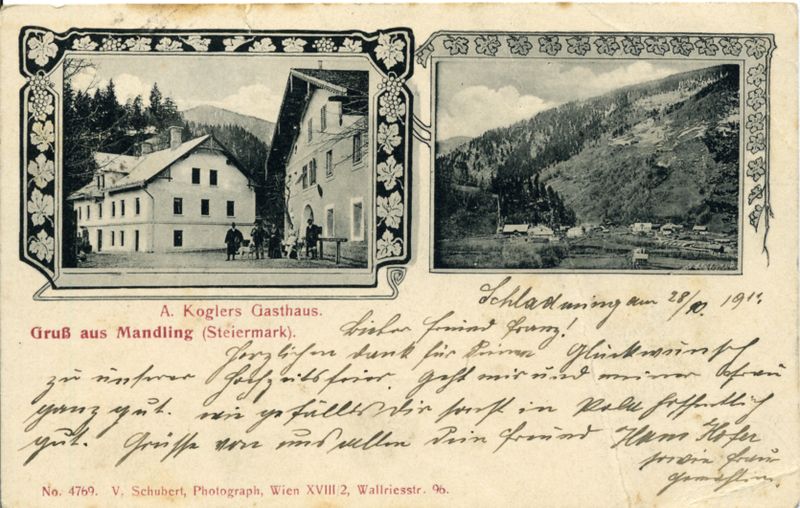 A. Koglers Gasthaus.
Gruß aus Mandling (Steiermark).
Schladming am 28/10. 191
Lieber Freund Franz!
Herzlichen dank für Deinen Glückwunsch
zu unserer Hochzeitsfeier. Geht mir und meiner Frau
ganz gut. wie gefällts Dir sonst in Pola hoffentlich
gut. Grüsse von uns allen Dein Freund Hans Hofer
sowie Frau
Gemahlin.
No. 4769. V. Schubert, Photograph, Wien XVIII/2, Wallriesstr. 96.